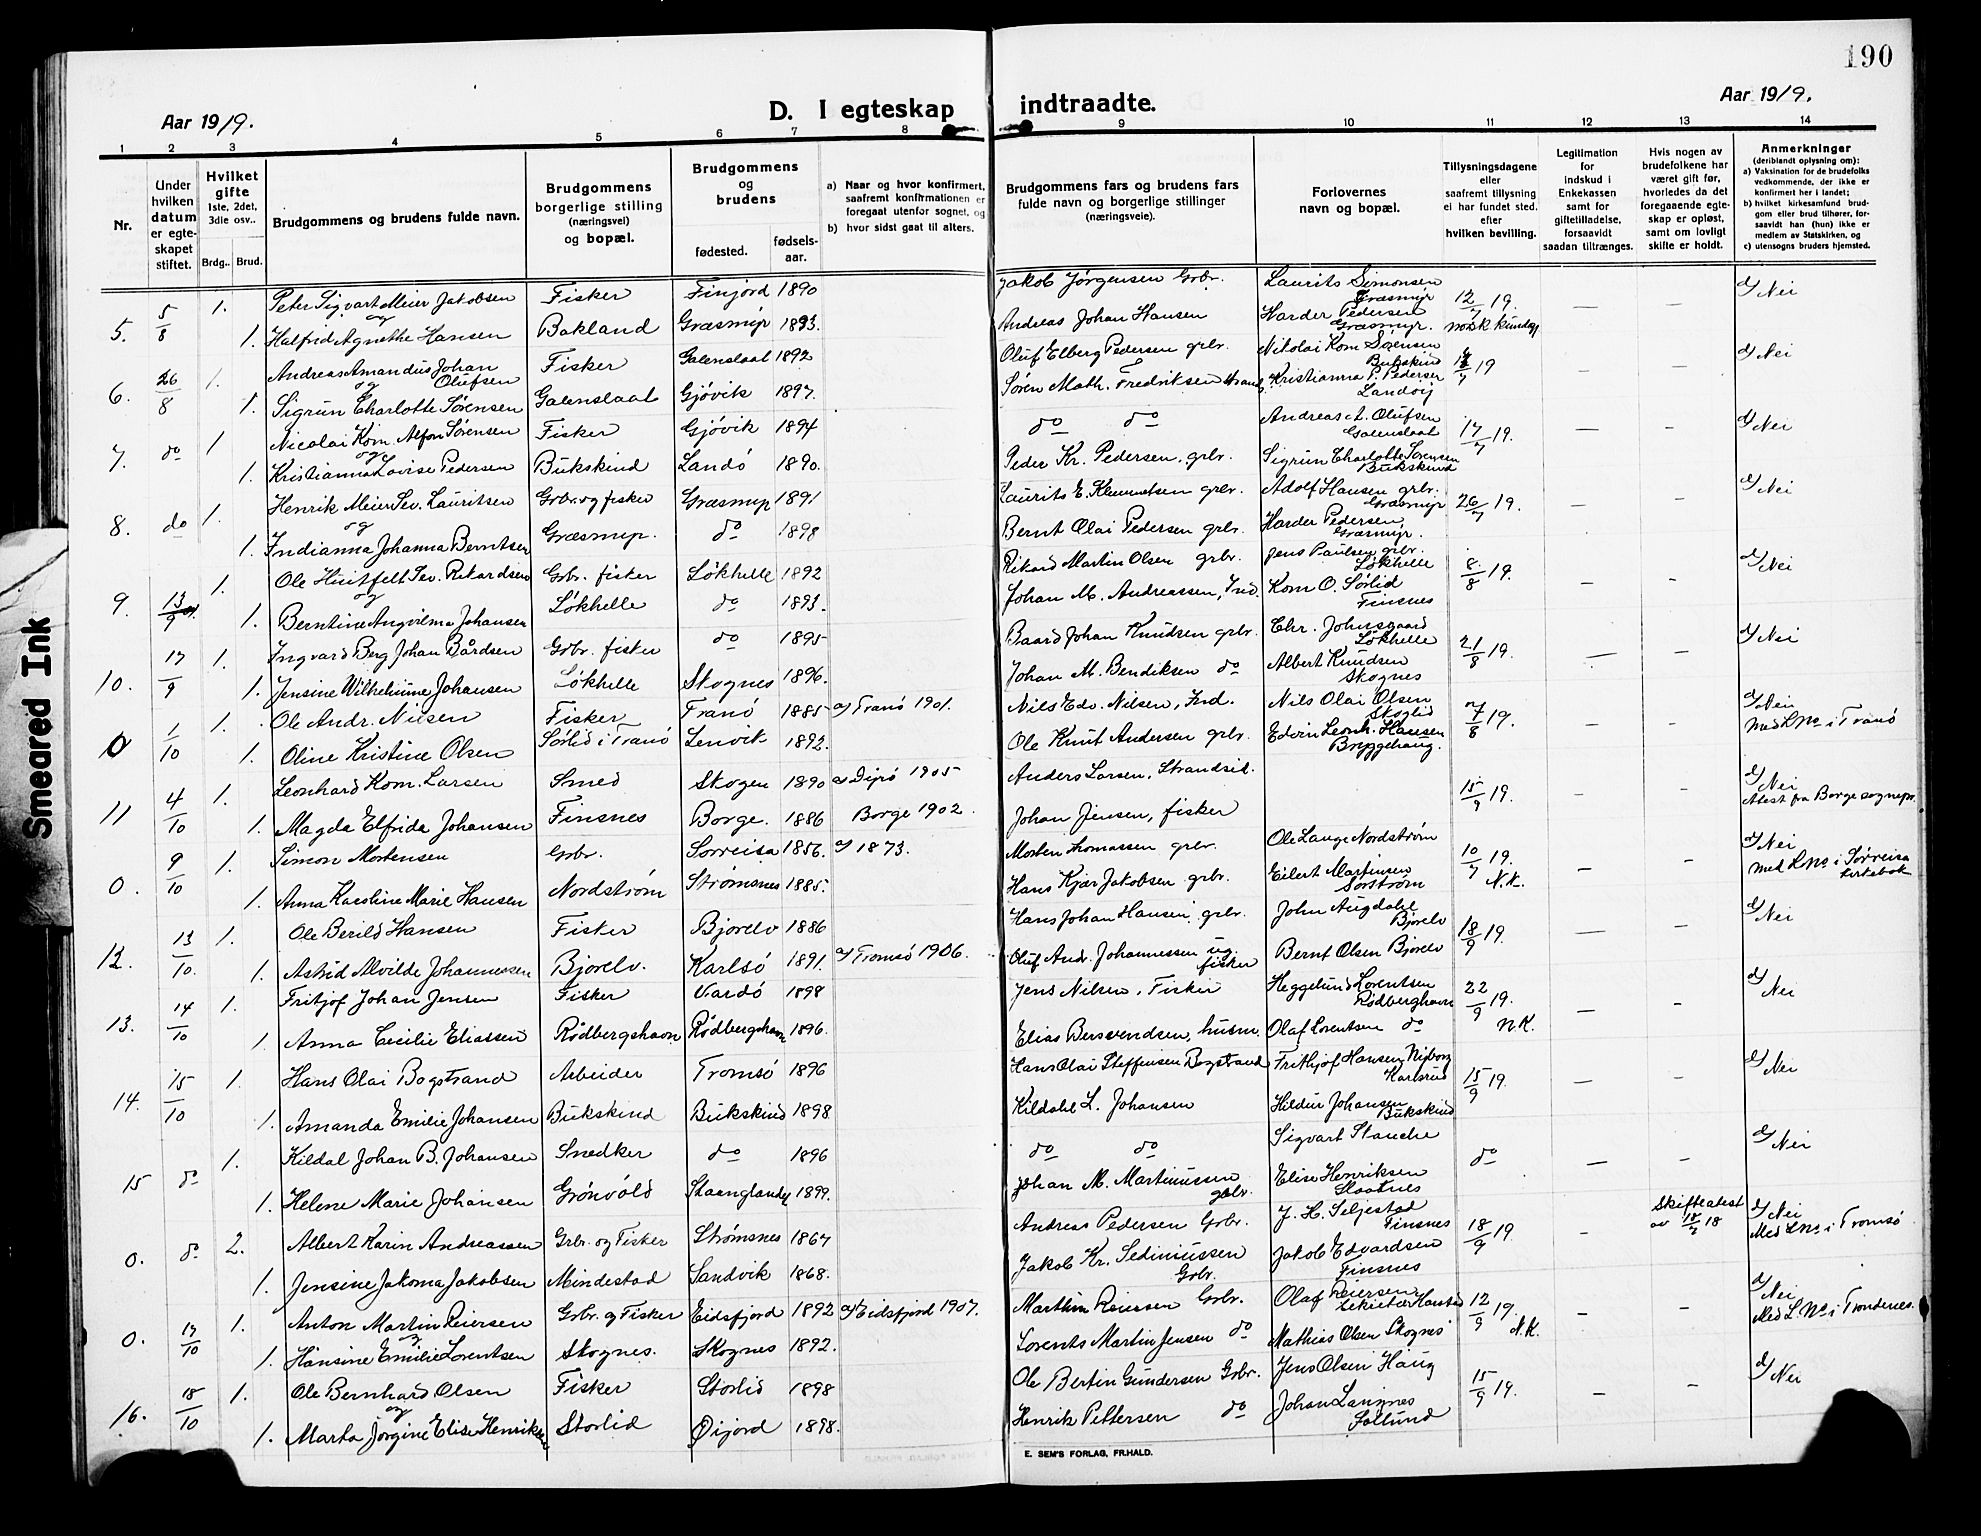 190
Aar 1919.
D. I egteskap indtraadte.
Aar 1919.
1 2 3 4 5 6 7 8 9 10 11 12 13 14
Nr.
Under hvilken datum er egteskapet stiftet.
Hvilket gifte
Iste, 2det, 3die osv..
Brdg.. Brud.
Brudgommens og brudens fulde navn.
Brudgommens borgerlige stilling (næringsvei) og bopæl.
Brudgommens og brudens
fødested.
fødselsaar.
a) Naar og hvor konfirmert, saafremt konfirmationen er foregaat utenfor sognet, og
b) hvor sidst gaat til alters.
Brudgommens fars og brudens fars fulde navn og borgerlige stillinger (næringsveie).
Forlovernes navn og bopæl.
Tillysningsdagene eller saafremt tillysning ei har fundet sted. efter hvilken bevilling.
Legitimation for indskud i Enkekassen samt for giftetilladelse, forsaavidt saadan tiltrænges.
Hvis nogen av brudefolkene har været gift før, hvorledes da det foregaaende egteskap er opløst, samt om lovligt skifte er holdt.
Anmerkninger
(deriblandt oplysning om):
a) Vaksination for de brudefolks vedkommende, der ikke er konfirmert her i landet;
b) hvilket kirkesamfund brudgom eller brud tilhører, forsaavidt han (hun) ikke er medlem av Statskirken, og
c) utensogns bruders hjemsted.
5. 5/8 1. Peter Sigvart Meier Jakobsen Fisker Finjord 1890 Jakob Jørgensen Grbr. Laurits Simonsen Græsmyr 12/7 19. — — d/ Nei
og
1. Halfrid Agnethe Hansen Bakland Græsmyr 1893. Andreas Johan Hansen Harder Pedersen Græsmyr. norsk kundgj
6. 26/8 1. Andreas Amandus Johan Olufsen Fisker Galenslaat 1892 Oluf Elberg Pedersen grbr. Nikolai Korn. Sørensen Bukskind 19 — — d/ Nei
og
1. Sigrun Charlotte Sørensen Galenslaat Gjøvik 1897. Søren Math. Fredriksen Kristianna P. Pedersen
7. do 1 Nicolai Korn. Alfon Sørensen Fisker Gjøvik 1894 do do Andreas A. Olufsen Galenslaat 17/7 19. — — d/ Nei
og
1. Kristianna Lovise Pedersen Bukskind Landø 1890. Peder Kr. Pedersen, grbr. Sigrun Charlotte Sørensen Bukskind
8. do 1. Henrik Meier Sev. Lauritsen Grbr. og fisker Græsmyr 1891 Laurits E. Klemetsen grbr. Adolf Hansen grbr. Græsmyr 26/7 19. — — d/ Nei
og
1. Indianna Johanna Berntsen Græsmyr. do 1898 Bernt Olai Pedersen grbr. Harder Pedersen Græsmyr.
9. 13/9 1. Ole Huitfelt Sev. Rikardsen Grbr. fisker Løkhelle 1892 Rikard Martin Olsen grbr. Jens Paulsen grbr. Løkhelle 8/8 19. — — d/ Nei
og
1. Berntine Angvilma Johansen Løkhelle do 1893. Johan M. Andreassen, Ind. Korn O. Sørlid Finsnes
10. 17/9 1. Ingvard Berg Johan Bårdsen Grbr. fisker do 1895 Baard Johan Knudsen grbr. Chr. Johnsgaard Løkhelle 21/8 19. — — d/ Nei
1. Jensine Wilhelmine Johansen Løkhelle Skognes 1896. Johan M. Bendiksen do Albert Knudsen Skognes
0 1/10 1. Ole Andr. Nilsen Fisker Tranø 1885 a/ Tranø 1901. Nils Edv. Nilsen, Ind. Nils Olai Olsen Skoglid 7/8 19. — — d/ Nei
Med L. No i Tranø
1. Oline Kristine Olsen Sørlid i Tranø Lenvik 1892. Ole Knut Andersen grbr. Edvin Leonh. Hansen Bryggehaug.
11 4/10 1. Leonhard Korn. Larsen Smed Skogen 1890 a/ Dyrø 1905 Anders Larsen, Strandsid. 15/9 19. — — d/ Nei
Atest fra Borge sognepr.
1. Magda Elfrida Johansen Finsnes Borge. 1886 Borge 1902. Johan Jensen, fisker
0. 9/10 1. Simon Mortensen Grbr. Sørreisa 1856. a/ 1873. Morten Thomassen grbr. Ole Lange Nordstrøm 10/7 19. N.K. — — d/ Nei
Med L No i Sørreisa kirkebok
1. Anna Karoline Marie Hansen Nordstrøm Strømsnes 1885. Hans Kjær Jakobsen grbr. Eilert Martinsen Sørstrøm
12. 13/10. 1. Ole Berild Hansen Fisker Bjorelv 1886 Hans Johan Hansen, grbr. John Augdahl Bjorelv 18/9 19. — — d/ Nei
1. Astrid Alvilde Johannessen Bjorelv. Karlsø 1891. a/ Tromsø 1906. Oluf Andr. Johannessen ug. fisker Bernt Olsen Bjorelv
13. 14/10 1. Fritjof Johan Jensen Fisker Vardø 1898 Jens Nilsen, Fisker Heggelund Lorentsen Rødberghavn 22/9 19. N.K. — — d/ Nei
1. Anna Cecilie Eliassen Rødbergshavn Rødbergshavn 1896. Elias Bersvendsen, husm. Olaf Lorentsen do
14. 15/10 1. Hans Olai Bogstrand Arbeider Tromsø 1896 Hans Olai Steffensen Bogstrand Frithjof Hansen Nyborg 15/9 19. — — d/ Nei
1. Amanda Emilie Johansen Bukskind Bukskind 1898 Kildahl L. Johansen Hildur Johansen Bukskind
15 do 1. Kildal Johan B. Johansen Snedker do 1896 do do Sigvart Stanche do — — d/ Nei
1. Helene Marie Johansen Grønvold 1899. Johan M. Martinussen grbr. Elise Henriksen
0. do 2. Albert Karin Andreassen Grbr. og Fisker Strømsnes 1867 Andreas Pedersen Grbr. J. H. Seljestad Finsnes 18/9 19. — Skifteatest av 18/2 18 d/ Nei
Med L No i Tromsø
1. Jensine Jakoma Jakobsen Mindestad Sandvik 1868. Jakob Kr. Sediniussen Grbr. Jakob Edvardsen Finsnes
0. 17/10 1. Anton Martin Reiersen Grbr. og Fisker Eidsfjord 1892 a/ Eidsfjord 1907. Marthin Reiersen Grbr. Olaf Reiersen 12/9 19. N.K. — — d/ Nei
Med L. No i Trondenes.
og
1. Hansine Emilie Lorentsen Skognes. Skognes 1892. Lorents Martin Jensen do Mathias Olsen Skognes
16. 18/10 1. Ole Bernhard Olsen Fisker Storlid 1898 Ole Bertin Gundersen Grbr. Jens Olsen Haug 15/9 19. — — d/ Nei
og
1. Marta Jørgine Elise Henriksen Storlid Øijord 1898. Henrik Pettersen do Johan Langnes
E. SEM'S FORLAG, FR.HALD.
Smeared Ink